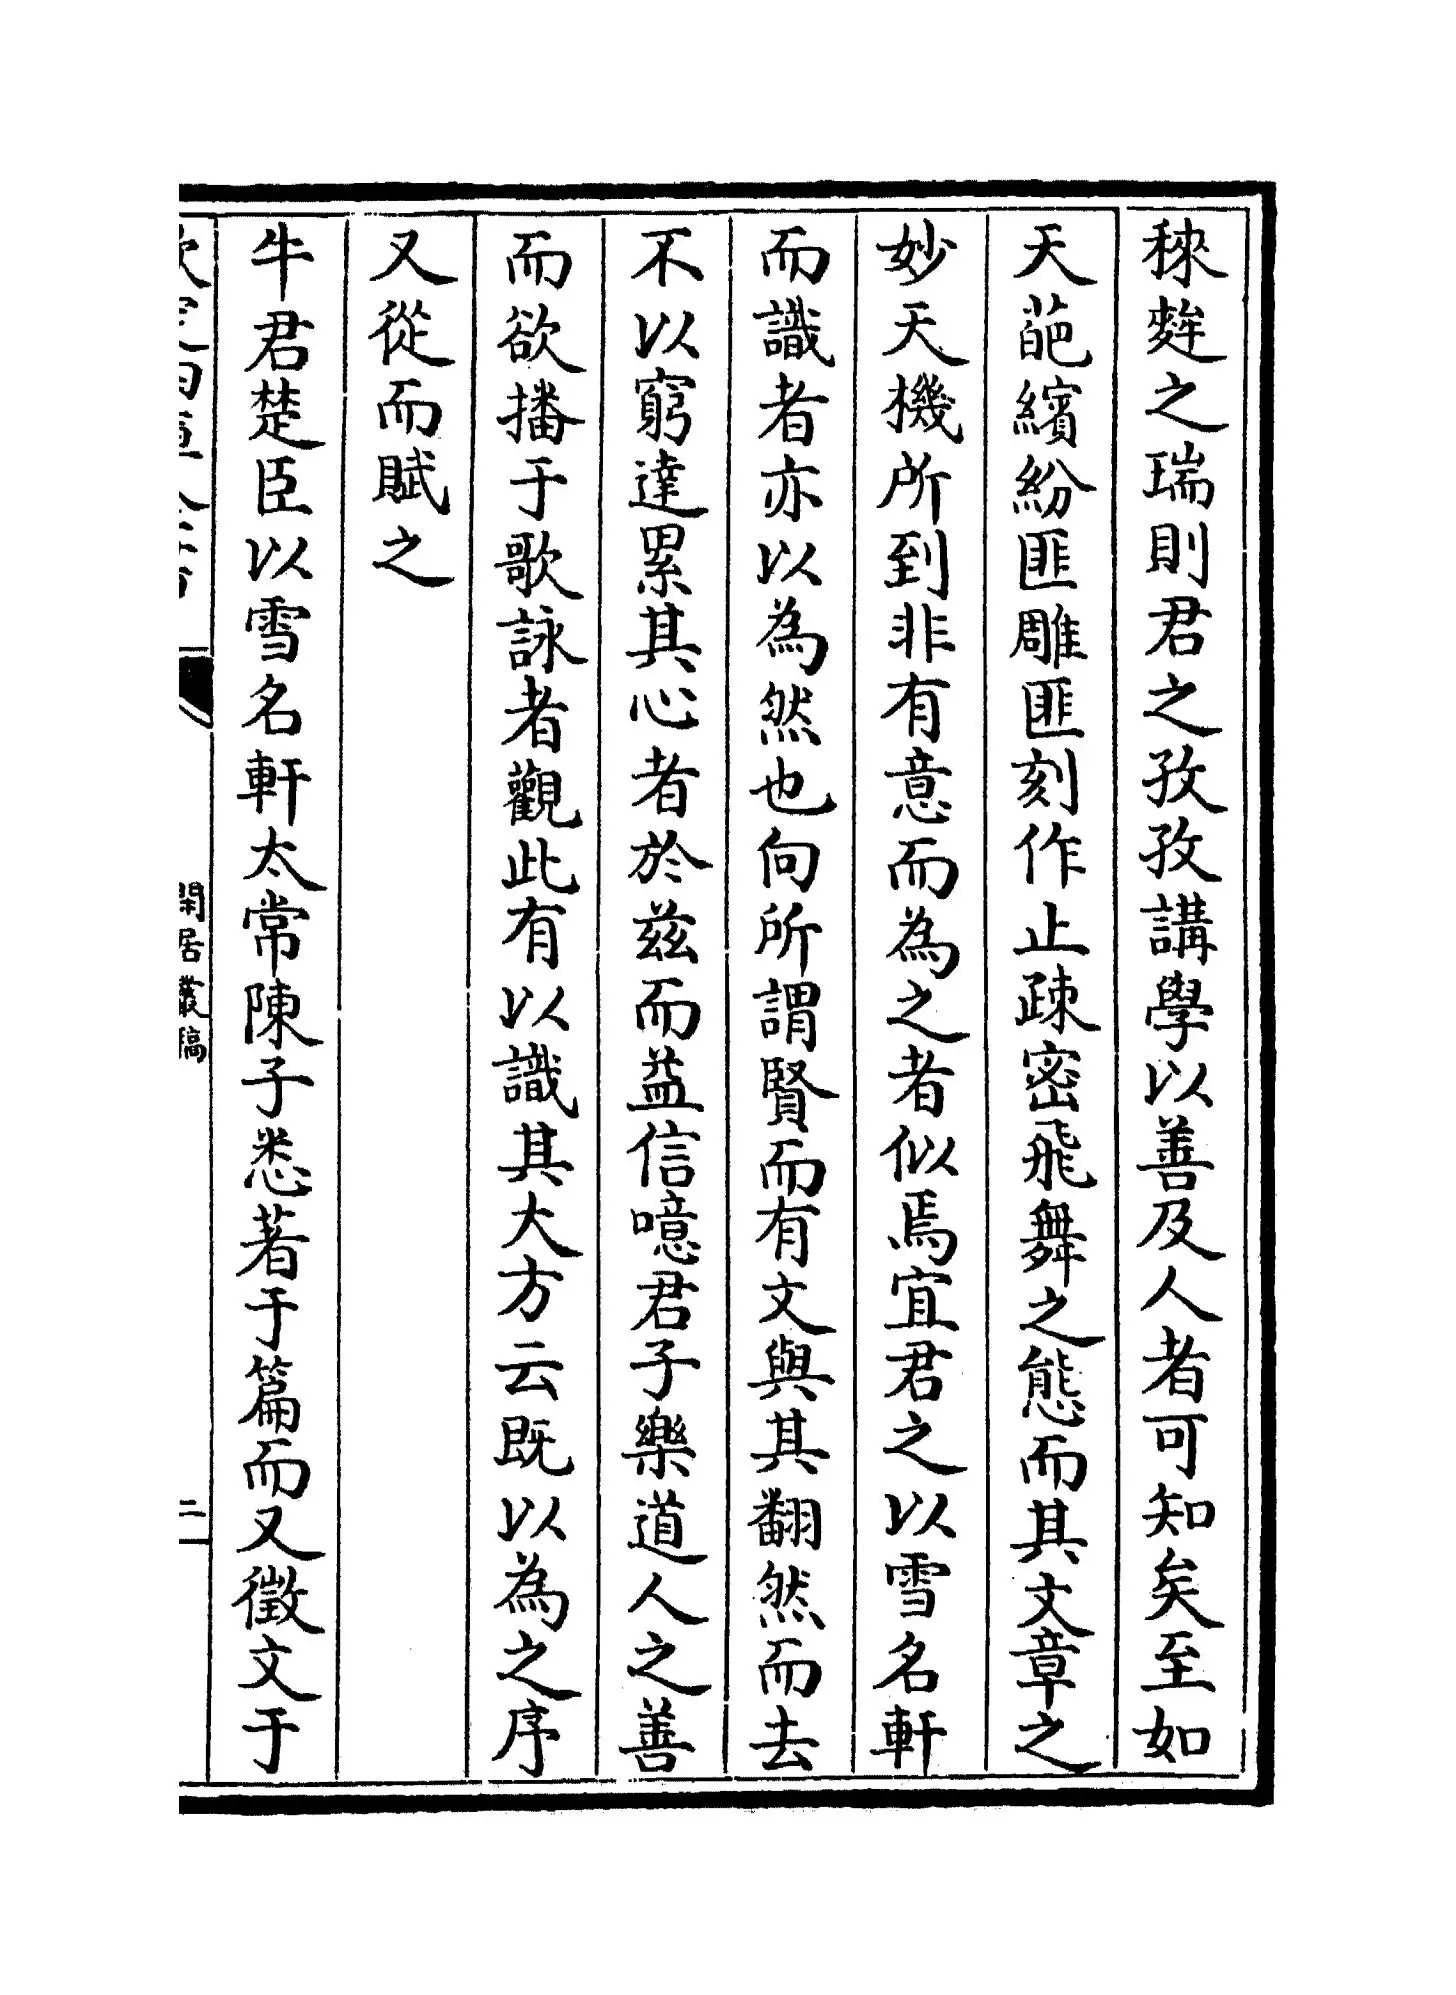 秾麰之瑞則君之孜孜講學以善及人者可知矣至如
天葩繽紛匪雕匪刻作止疎密飛舞之態而其文章之
妙天機所到非有意而為之者似焉宜君之以雪名軒
而識者亦以為然也向所謂賢而有文與其翻然而去
不以窮達累其心者於兹而益信噫君子樂道人之善
而欲播于歌詠者觀此有以識其大方云既以為之序
又從而賦之
牛君楚臣以雪名軒太常陳子悉著于篇而又徵文于
欽定四庫全書
閒居叢稿
二